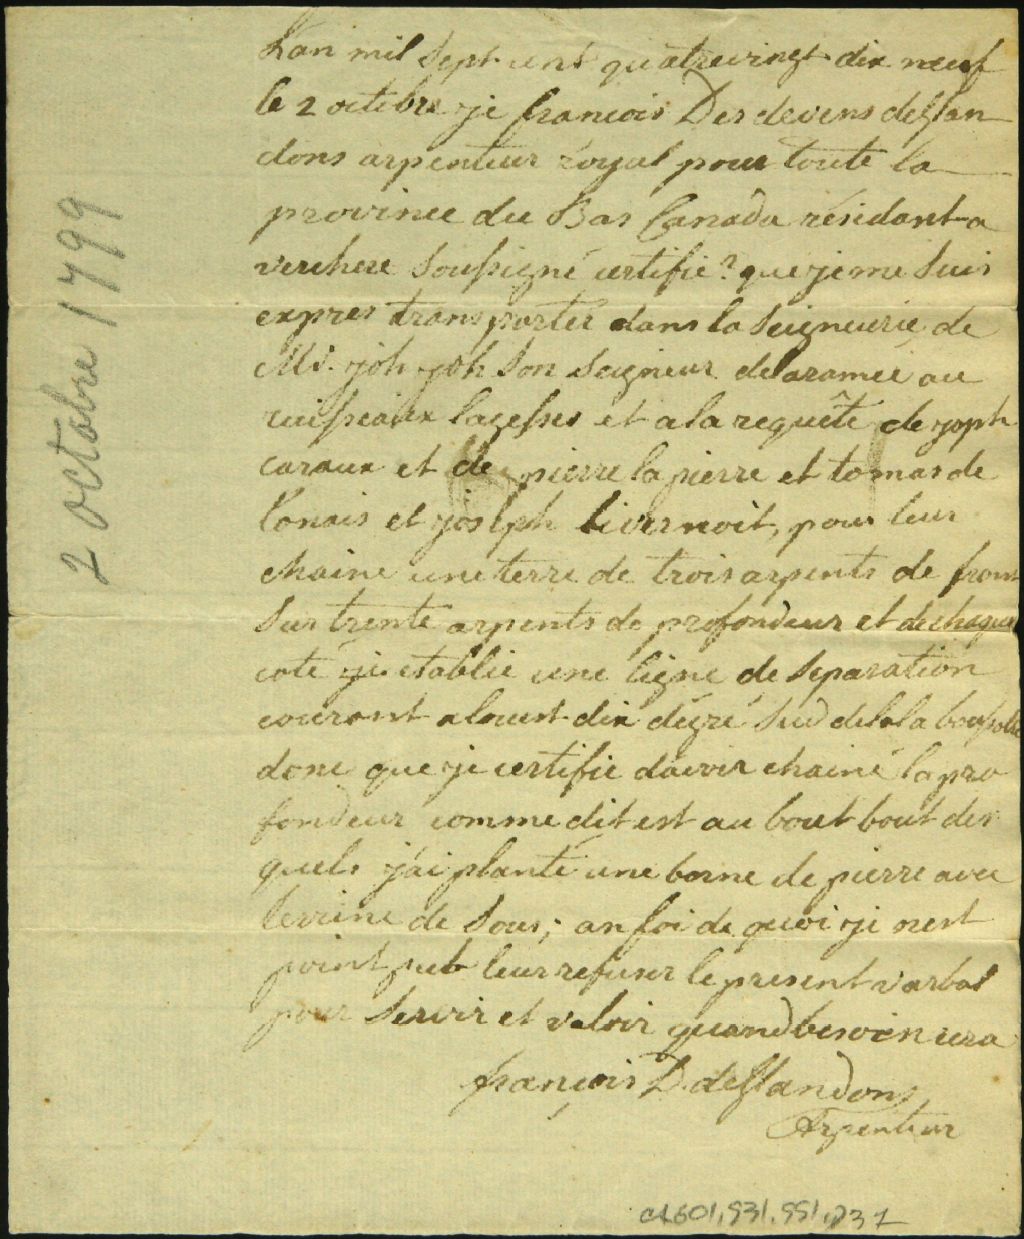 Lan mil sept cent quatrevingt dix neuf
le 2 octobre je francois Des devens desglan
dons arpenteur royal pour toute la
province du Bas Canada résidant a
verchere soussigné certifie? que je me suis
expres transporter dans la seigneurie de
Mr. joh joh son seigneur de laramee au
ruisseaux lacesses et a la requête de joph
caraux et de pierre la pierre et tomas de
lonais et joseph livernoit, pour leur
chaine une terre de trois arpents de front
sur trente arpents de profondeur et de chaque
coté je etablie une ligne de separation
courant alouest dix dégré sud de la boussole
donc que je certifie davoir chainé la pro
fondeur comme dit est au bout bout des
quels j'ai planté une borne de pierre avec
de sous; an foi de quoi je nest
point put leur refuser le present varbal
pour servir et valoir quand besoin sera
françois D. desglandons
Arpenteur
2 octobre 1799
CA601,S31,SS1,D31